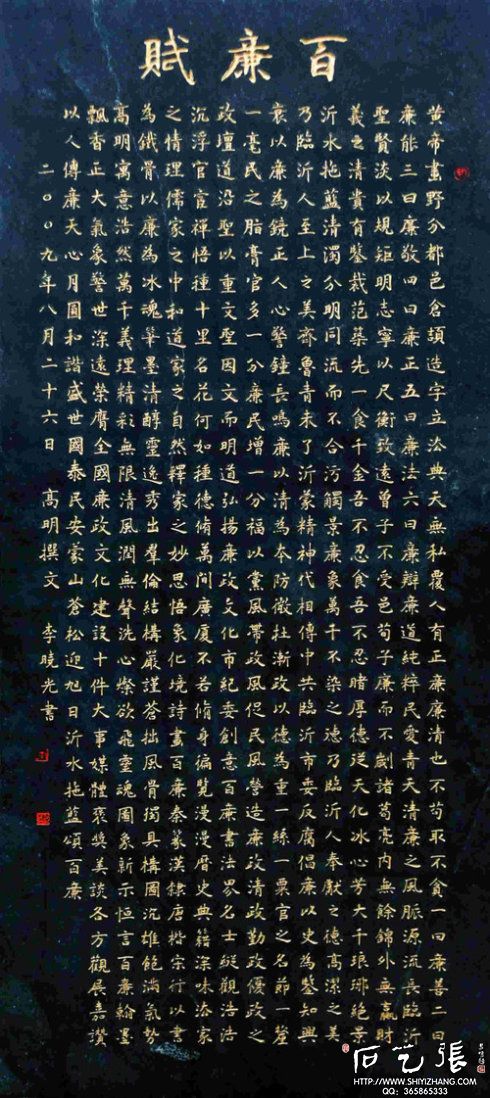 百廉賦
黄帝畫野分都邑倉頡造字立法典天無私覆人有正廉廉清也不苟取不貪一曰廉善二曰
廉能三曰廉敬四曰廉正五曰廉法六曰廉辯廉道純粹民愛青天清廉之風脈源流長臨沂
聖賢淡以規矩明志寧以尺衡致遠曾子不受邑荀子廉而不劌諸葛亮内無餘錦外無贏財
羲之清貴有鑒裁范蠡先一食千金吾不忍食吾不忍睹厚德廷天化冰心芳大千琅琊絶景
沂水拖藍清濁分明同流而不合污觸景廉象萬千不染之德乃臨沂人奉獻之德高潔之美
乃臨沂人至上之美齊魯青未了沂蒙精神代相傳中共臨沂市委反腐倡廉以史為鑒知興
衰以廉為鏡正人心警鐘長鳴廉以清為本防微杜漸政以德為重一絲一粟官之名節一釐
一毫民之脂膏官多一分廉民增一分福以黨風帶政風促民風營造廉政清政勤政優政之
政壇道沿聖以重文聖因文而明道弘揚廉政文化市紀委創意百廉書法界名士縱觀浩浩
沉浮官宦禪悟種十里名花何如種德脩萬间廣厦不若脩身徧覽漫漫曆史典籍深味法家
之情理儒家之中和道家之自然釋家之妙思悟象化境詩書百廉秦篆漢隸唐楷宗行以書
為鐵骨以廉為冰魂筆墨清醇靈逸秀出羣倫結構嚴謹蒼拙風骨獨具構圖沉雄飽满氣勢
高明寓意浩然萬千義理精彩無限清風潤無聲洗心滌欲飛靈魂圖象新示恒言百廉翰墨
飄香正大氣象警世深遠榮膺全國廉政文化建設十件大事媒體褒奬美談各方觀展嘉讚
以人傳廉天心月圓和諧盛世國泰民安蒙山蒼松迎旭日沂水拖藍頌百廉
二〇〇九年八月二十六日 高明撰文 李曉光書
石艺張
WWW.SHIYIZHANG.COM
QQ: 365865333